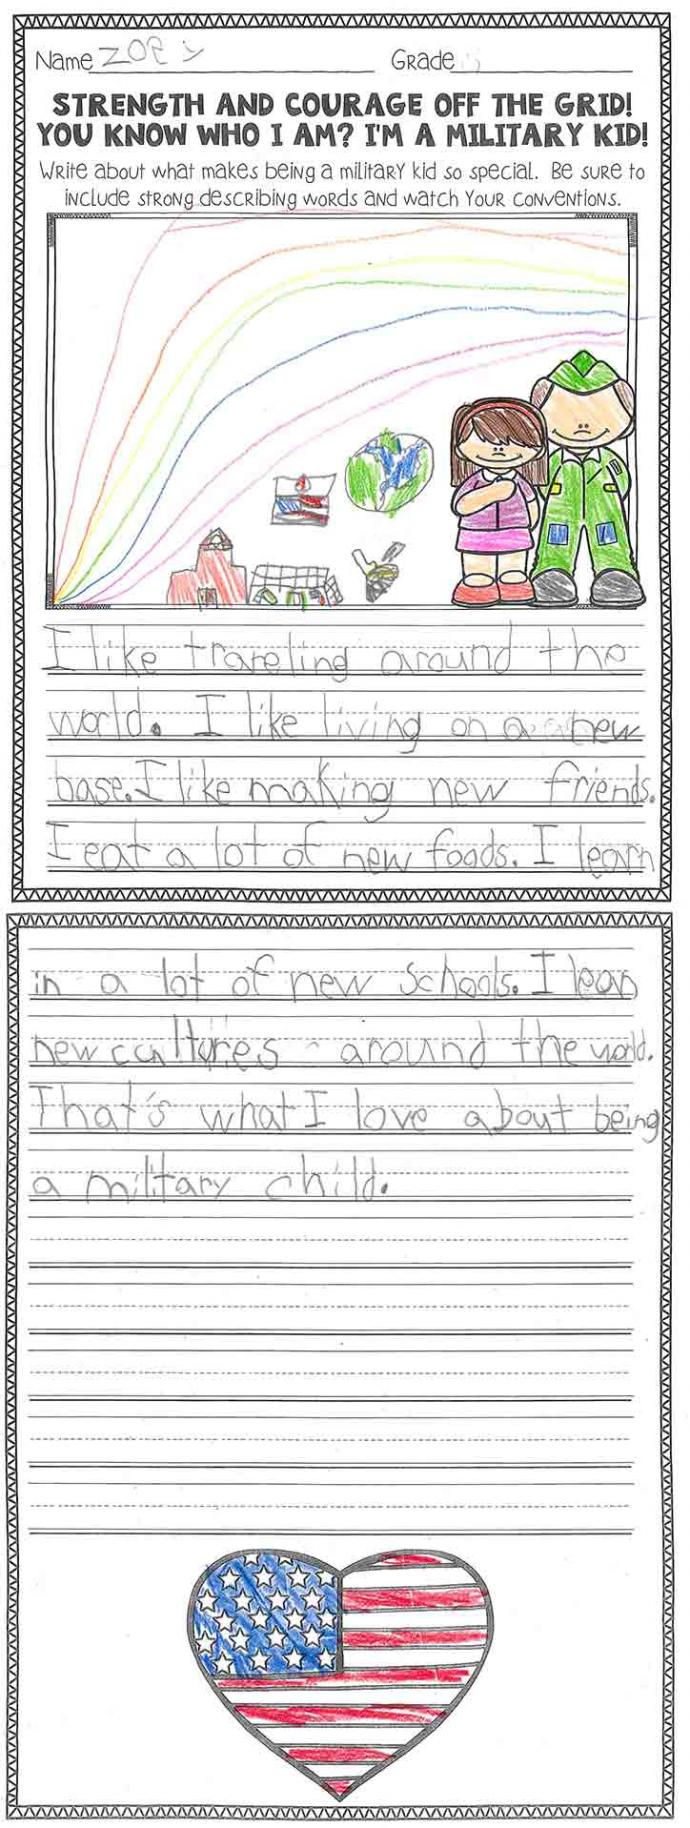 Name Zoey Grade
STRENGTH AND COURAGE OFF THE GRID!
YOU KNOW WHO I AM? I'M A MILITARY KID!
Write about what makes being a military kid so special. Be sure to
include strong describing words and watch your conventions.
I like traveling around the
world. I like living on a new
base. I like making new friends.
I eat a lot of new foods. I learn
in a lot of new schools. I lean
new cultures around the world.
That's what I love about being
a military child.